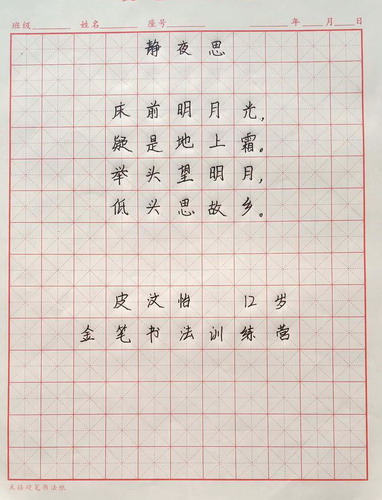 班级 姓名 座号 年 月 日
静夜思
床前明月光，
疑是地上霜。
举头望明月，
低头思故乡。
皮汶怡 12岁
金笔书法训练营
硬笔书法纸